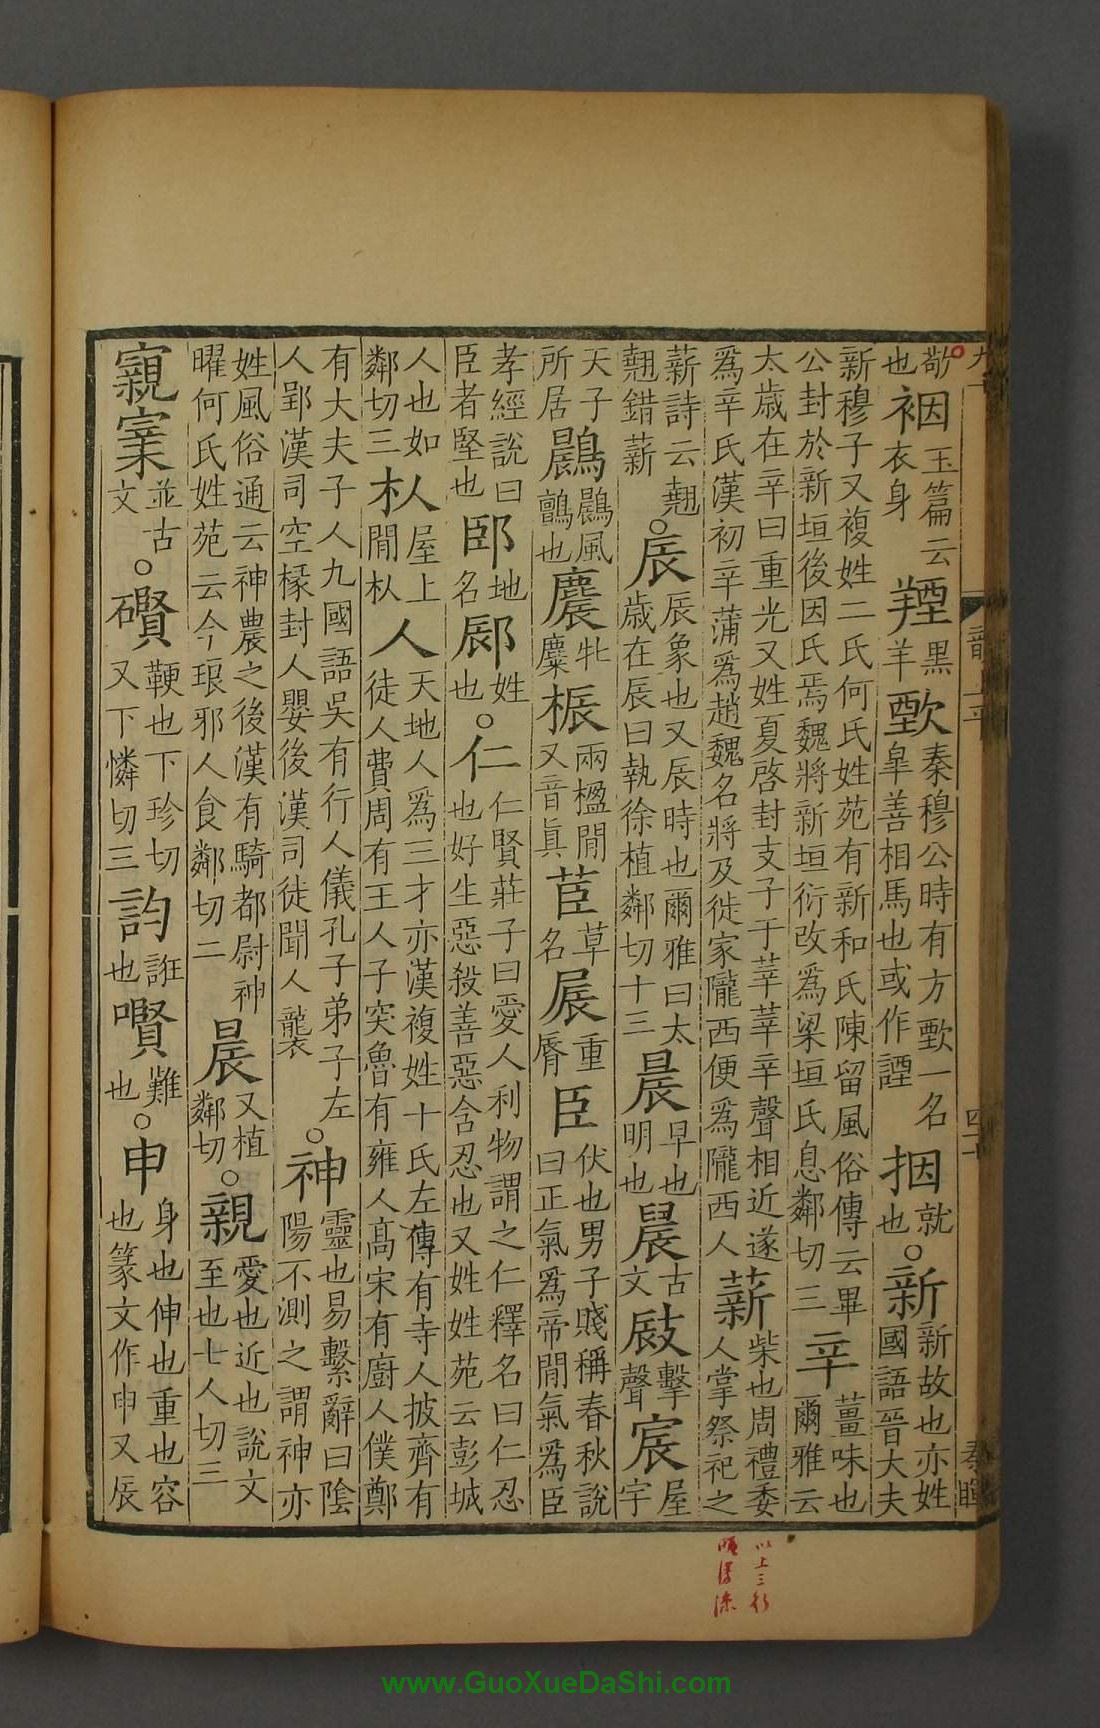 欹也 裀玉篇云衣身 羥黑羊 甄秦穆公時有方甄一名臯善相馬也或作諲 捆就也○新新故也亦姓國語晉大夫
新穆子又複姓二氏何氏姓苑有新和氏陳留風俗傳云畢公封於新垣後因氏焉魏將新垣衍改爲梁垣氏息鄰切三 辛薑味也爾雅云
太歲在辛曰重光又姓夏啓封支子于莘莘辛聲相近遂爲辛氏漢初辛蒲爲趙魏名將及徙家隴西便爲隴西人 薪柴也周禮委人掌祭祀之
薪詩云翹翹錯薪○辰辰象也又辰時也爾雅曰太歲在辰曰執徐植鄰切十三 晨早也明也 曟古文 㪜擊聲 宸屋宇
天子所居 鷐鷐風鸇也 麎牝麋 桭兩楹閒又音眞 茞草名 屒重脣 臣伏也男子賤稱春秋說曰正氣爲帝閒氣爲臣
孝經說曰臣者堅也 邸地名 㕓姓也○仁仁賢莊子曰愛人利物謂之仁釋名曰仁忍也好生惡殺善惡含忍也又姓姓苑云彭城
人也如鄰切三 朳屋上閒朳 人天地人爲三才亦漢複姓十氏左傳有寺人披齊有徒人費周有王人子突魯有雍人高宋有廚人僕鄭
有大夫子人九國語吳有行人儀孔子弟子左人郢漢司空掾封人嬰後漢司徒聞人襲○神靈也易繫辭曰陰陽不測之謂神亦
姓風俗通云神農之後漢有騎都尉神曜何氏姓苑云今琅邪人食鄰切二 晨又植鄰切○親愛也近也說文至也七人切三
寴㝲並古文○礥鞕也下珍切又下憐切三 訇誑也 㘋難也○申身也伸也重也容也篆文作申又辰
龍上平
四十
秦暉
以上三行